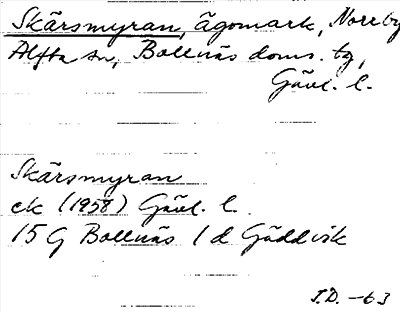 Skärsmyran, ägomark, Norrby
Alfta sn, Bollnäs doms. tg,
Gävl. l.
Skärsmyran
ek (1958) Gävl. l.
15 G Bollnäs 1 d Gäddvik
J.D. -63